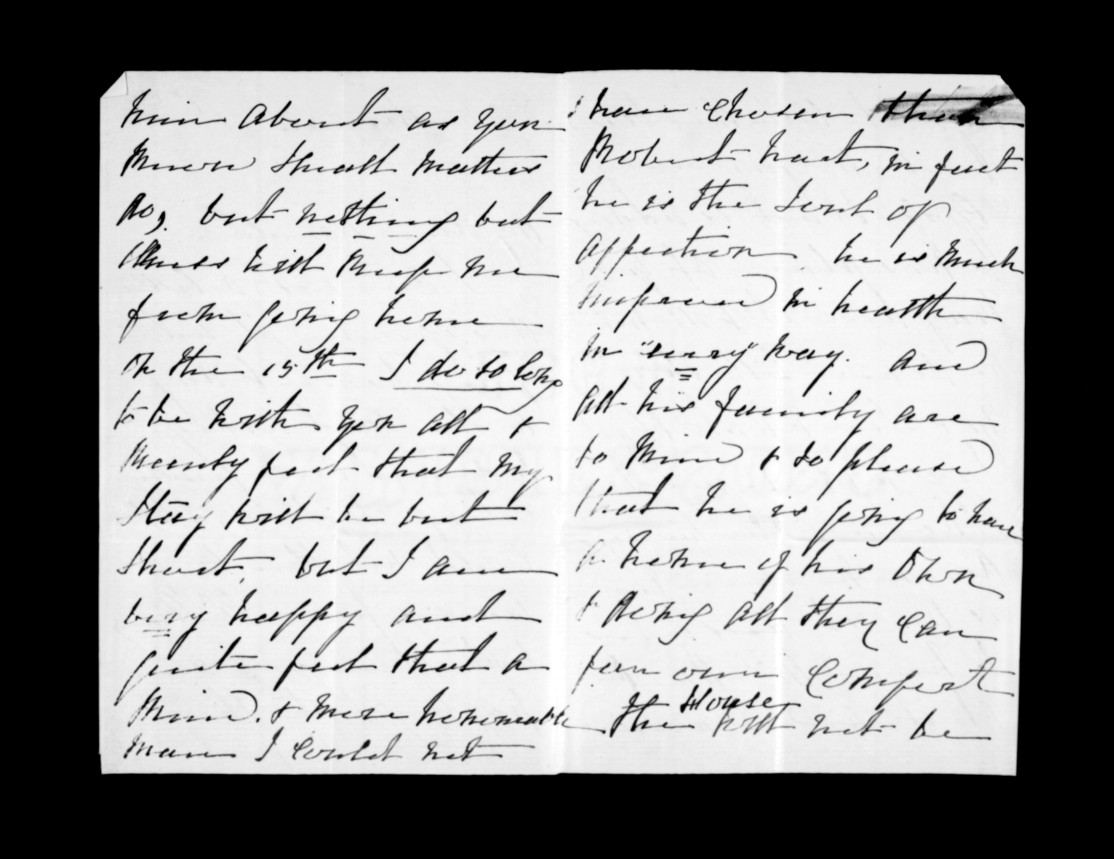 him about as you
know small matters
do, but nothing but
illness will keep me
from going home
on the 15th I do so long
to be with you all &
merely feel that my
stay will be but
short, but I am
very happy and
quite feel that a
kind. & more honorable
man I could not
have chosen than
Robert has, in fact
he is the soul of
affection he is much
improved in health
in "every" way. and
all his family are
so kind & so pleased
that he is going to have
a home of his own
& doing all they can
for our comfort
The House will not be